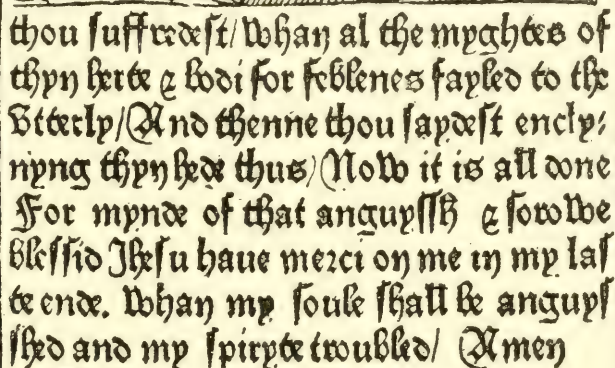 thou suffredest/ whan al the myghtes of
thyn herte & bodi for feblenes fayled to the
vtterly/ And thenne thou saydest encly⸗
nyng thyn hede thus/ Now it is all done
For mynde of that anguyssh & sorowe
blessid Ihesu haue merci on me in my las
te ende. whan my soule shall be anguys
shed and my spiryte troubled/ Amen